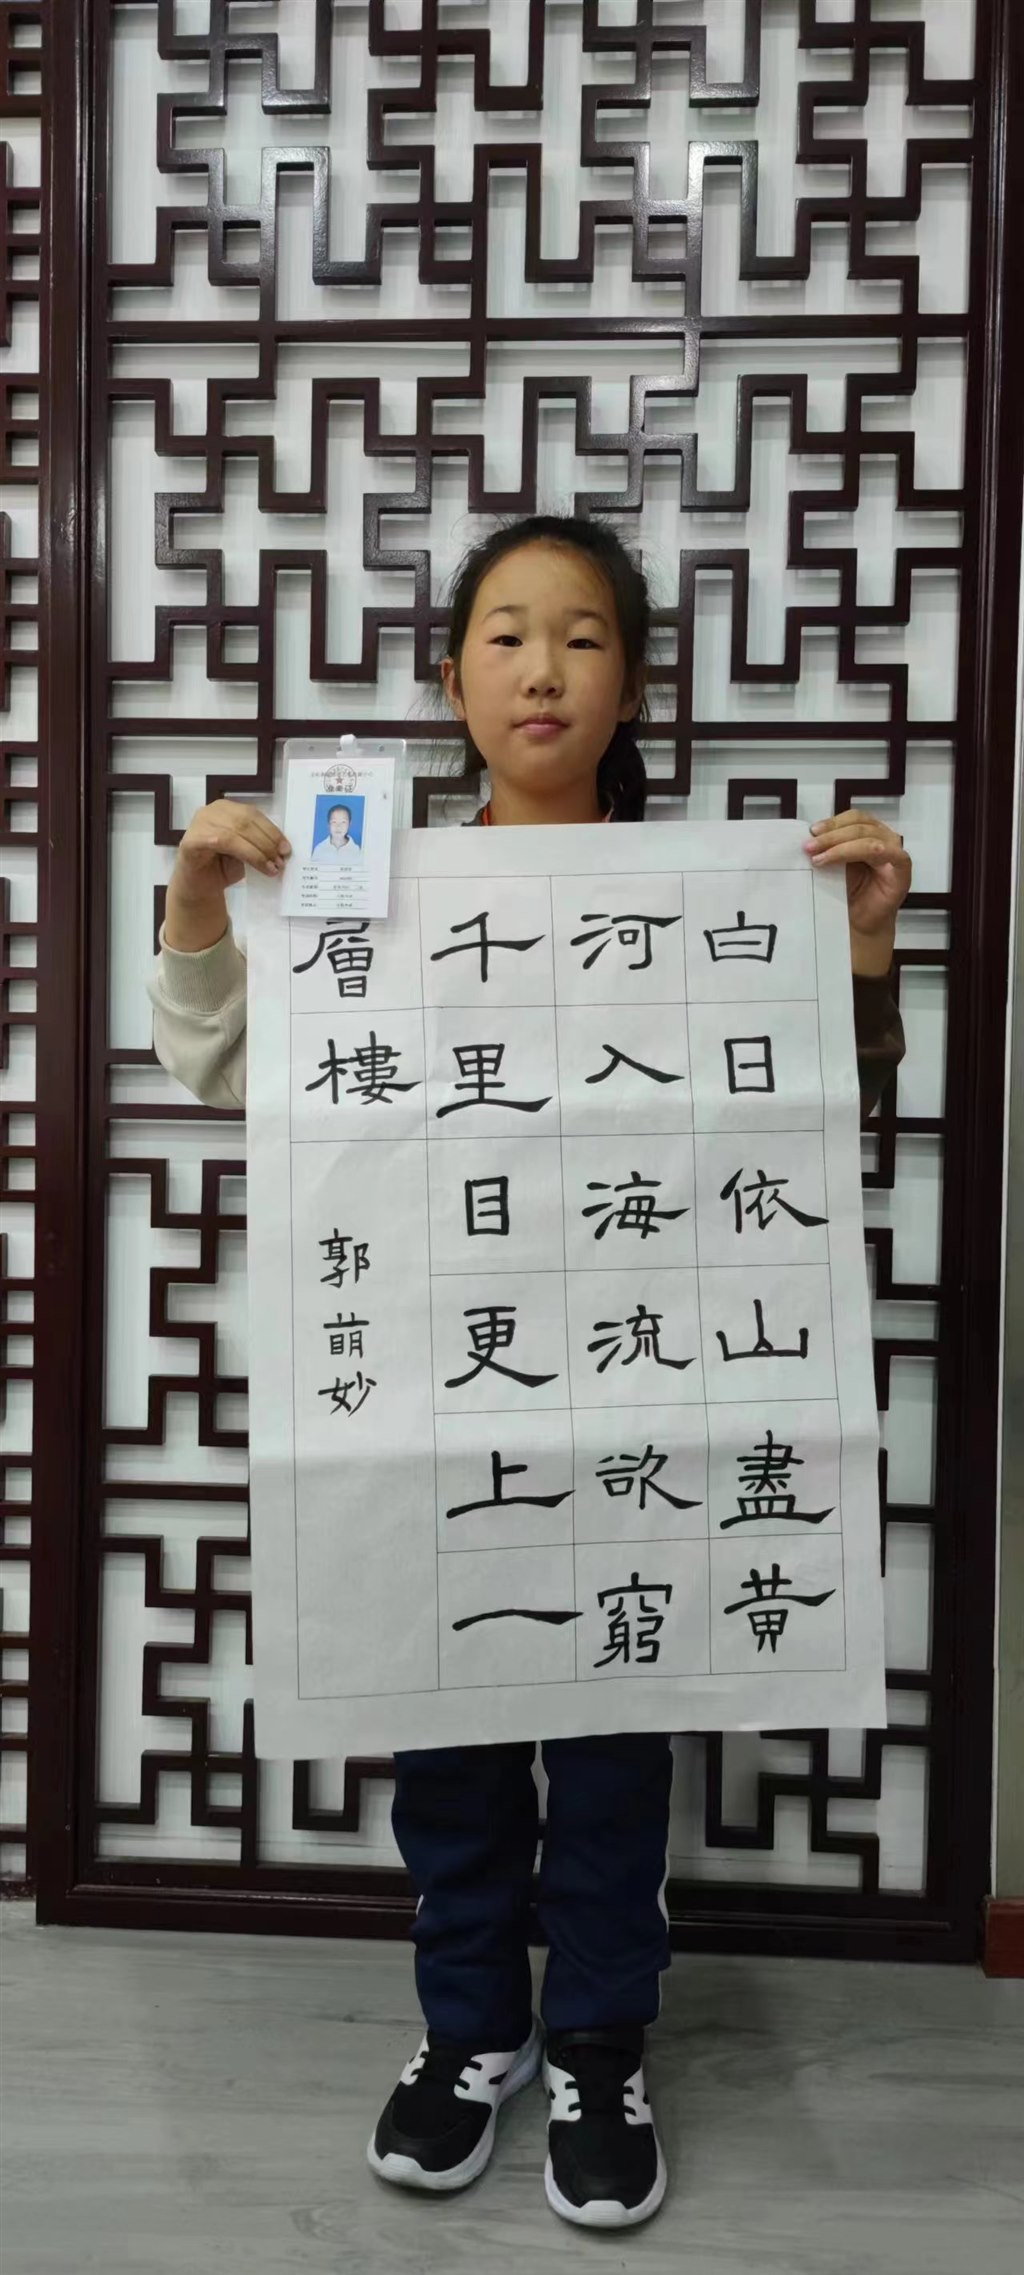 白日依山盡黄
河入海流欲窮
千里目更上一
層樓
郭萌妙
准考证